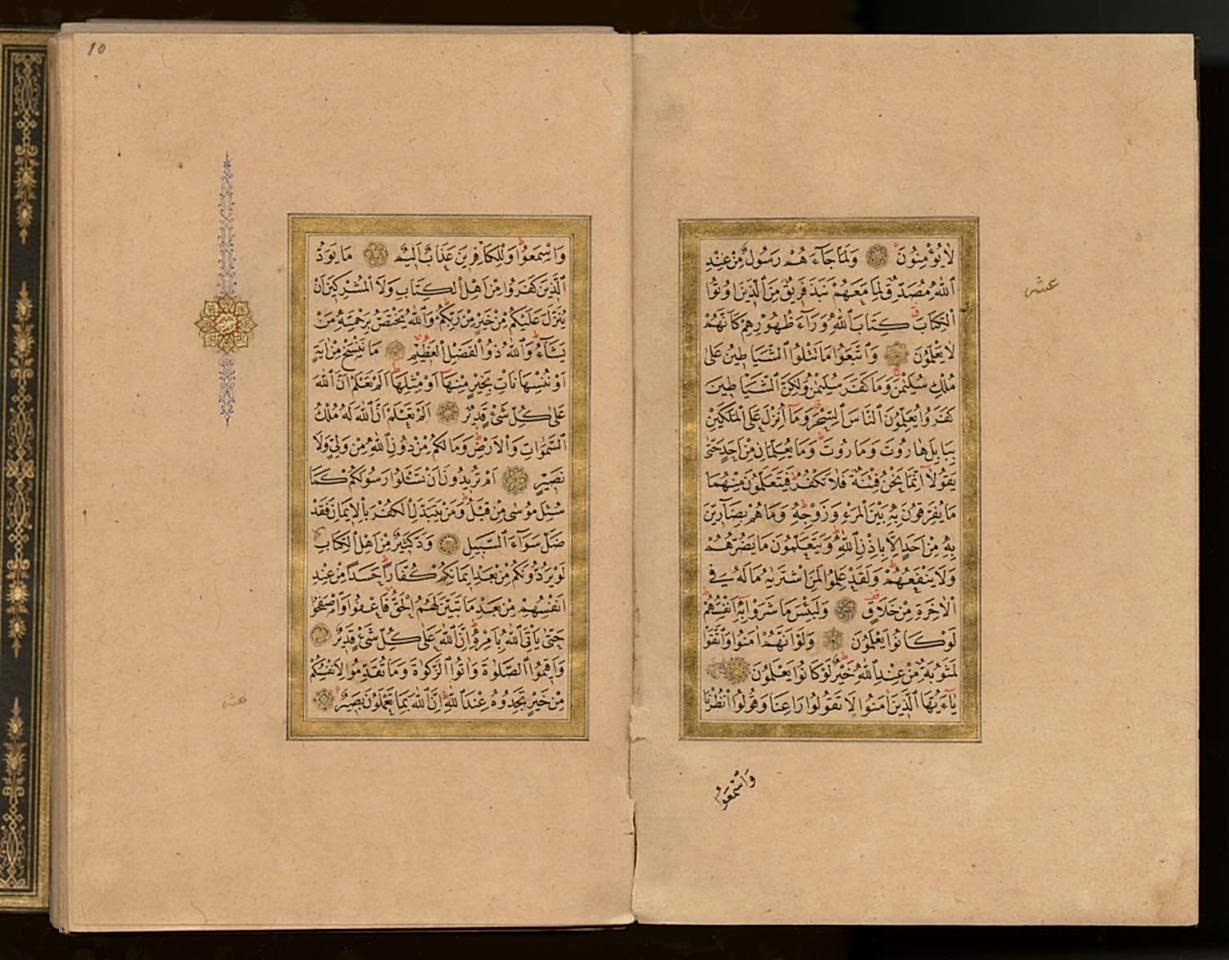 لَا يُؤْمِنُونَ وَلَمَّا جَاءَهُمْ رَسُولٌ مِنْ عِنْدِ
اللّٰهِ مُصَدِّقٌ لِمَا مَعَهُمْ نَبَذَ فَرِيقٌ مِنَ الَّذِينَ اُوتُوا
الْكِتَابَ كِتَابَ اللّٰهِ وَرَاءَ ظُهُورِهِمْ كَاَنَّهُمْ
لَا يَعْلَمُونَ وَاتَّبَعُوا مَا تَتْلُوا الشَّيَاطِينُ عَلٰى
مُلْكِ سُلَيْمٰنَ وَمَا كَفَرَ سُلَيْمٰنُ وَلٰكِنَّ الشَّيَاطِينَ
كَفَرُوا يُعَلِّمُونَ النَّاسَ السِّحْرَ وَمَا اُنْزِلَ عَلَى الْمَلَكَيْنِ
بِبَابِلَ هَارُوتَ وَمَارُوتَ وَمَا يُعَلِّمَانِ مِنْ اَحَدٍ حَتّٰى
يَقُولَا اِنَّمَا نَحْنُ فِتْنَةٌ فَلَا تَكْفُرْ فَيَتَعَلَّمُونَ مِنْهُمَا
مَا يُفَرِّقُونَ بِهِ بَيْنَ الْمَرْءِ وَزَوْجِهِ وَمَا هُمْ بِضَارِّينَ
بِهِ مِنْ اَحَدٍ اِلَّا بِاِذْنِ اللّٰهِ وَيَتَعَلَّمُونَ مَا يَضُرُّهُمْ
وَلَا يَنْفَعُهُمْ وَلَقَدْ عَلِمُوا لَمَنِ اشْتَرٰيهُ مَا لَهُ فِي
الْاٰخِرَةِ مِنْ خَلَاقٍ وَلَبِئْسَ مَا شَرَوْا بِهِ اَنْفُسَهُمْ
لَوْ كَانُوا يَعْلَمُونَ وَلَوْ اَنَّهُمْ اٰمَنُوا وَاتَّقَوْا
لَمَثُوبَةٌ مِنْ عِنْدِ اللّٰهِ خَيْرٌ لَوْ كَانُوا يَعْلَمُونَ
يَا اَيُّهَا الَّذِينَ اٰمَنُوا لَا تَقُولُوا رَاعِنَا وَقُولُوا انْظُرْنَا
وَاسْمَعُوا
عشر
10
وَاسْمَعُوا وَلِلْكَافِرِينَ عَذَابٌ اَلِيمٌ مَا يَوَدُّ
الَّذِينَ كَفَرُوا مِنْ اَهْلِ الْكِتَابِ وَلَا الْمُشْرِكِينَ اَنْ
يُنَزَّلَ عَلَيْكُمْ مِنْ خَيْرٍ مِنْ رَبِّكُمْ وَاللّٰهُ يَخْتَصُّ بِرَحْمَتِهِ مَنْ
يَشَاءُ وَاللّٰهُ ذُو الْفَضْلِ الْعَظِيمِ مَا نَنْسَخْ مِنْ اٰيَةٍ
اَوْ نُنْسِهَا نَاْتِ بِخَيْرٍ مِنْهَا اَوْ مِثْلِهَا اَلَمْ تَعْلَمْ اَنَّ اللّٰهَ
عَلٰى كُلِّ شَيْءٍ قَدِيرٌ اَلَمْ تَعْلَمْ اَنَّ اللّٰهَ لَهُ مُلْكُ
السَّمٰوَاتِ وَالْاَرْضِ وَمَا لَكُمْ مِنْ دُونِ اللّٰهِ مِنْ وَلِيٍّ وَلَا
نَصِيرٍ اَمْ تُرِيدُونَ اَنْ تَسْئَلُوا رَسُولَكُمْ كَمَا
سُئِلَ مُوسٰى مِنْ قَبْلُ وَمَنْ يَتَبَدَّلِ الْكُفْرَ بِالْاِيمَانِ فَقَدْ
ضَلَّ سَوَاءَ السَّبِيلِ وَدَّ كَثِيرٌ مِنْ اَهْلِ الْكِتَابِ
لَوْ يَرُدُّونَكُمْ مِنْ بَعْدِ اِيمَانِكُمْ كُفَّارًا حَسَدًا مِنْ عِنْدِ
اَنْفُسِهِمْ مِنْ بَعْدِ مَا تَبَيَّنَ لَهُمُ الْحَقُّ فَاعْفُوا وَاصْفَحُوا
حَتّٰى يَاْتِيَ اللّٰهُ بِاَمْرِهِ اِنَّ اللّٰهَ عَلٰى كُلِّ شَيْءٍ قَدِيرٌ
وَاَقِيمُوا الصَّلٰوةَ وَاٰتُوا الزَّكٰوةَ وَمَا تُقَدِّمُوا لِاَنْفُسِكُمْ
مِنْ خَيْرٍ تَجِدُوهُ عِنْدَ اللّٰهِ اِنَّ اللّٰهَ بِمَا تَعْمَلُونَ بَصِيرٌ
عشر